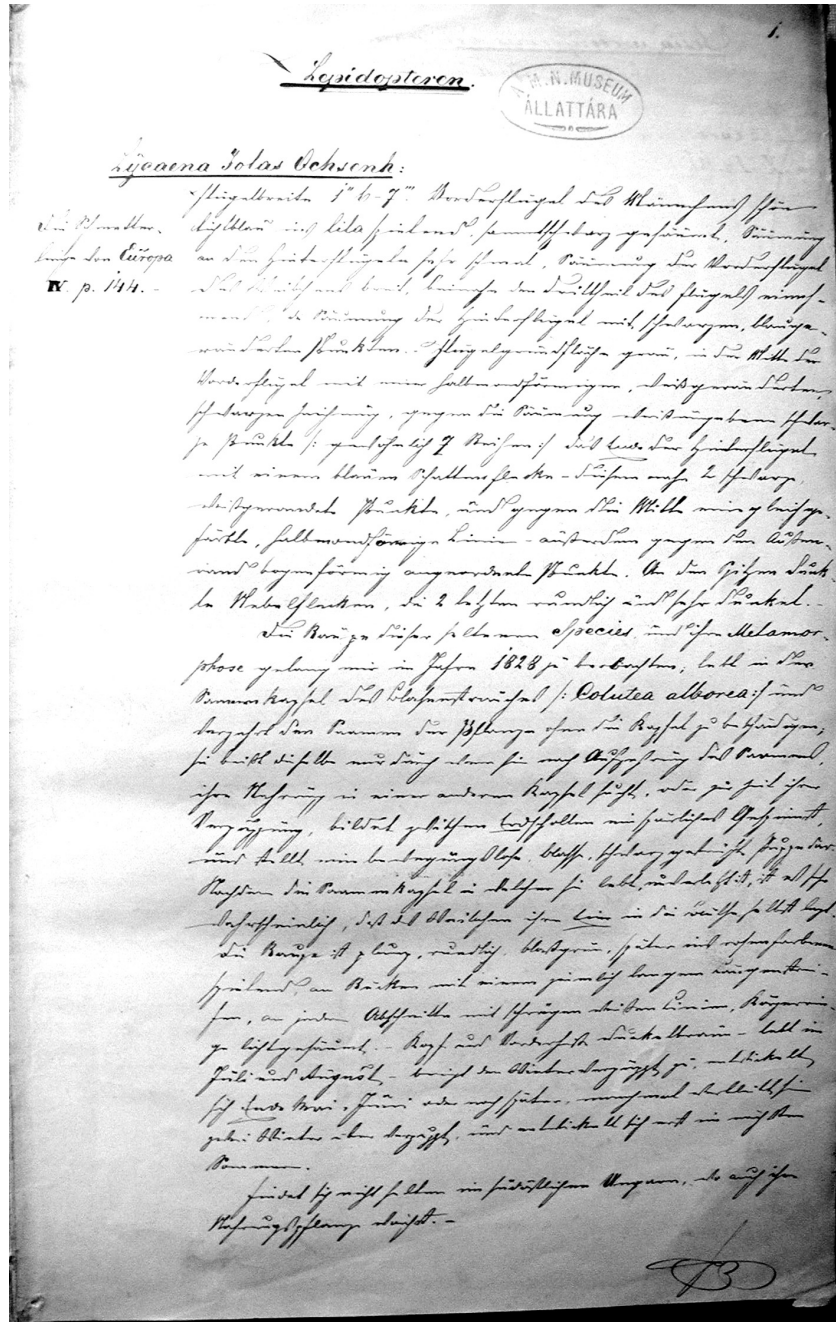 1.
Lepidopteren.
A M. N. MUSEUM
ÁLLATTÁRA
Lÿcaena Iolas Ochsenh:
Flügelbreite 1" 6-7"' Vorderflügel des Männchens schön
Die Schmetter-
lichtblau ins lila spielend, sammtschwarz gesäumt, Säumung
linge von Europa
an den Hinterflügeln sehr schmal, Säumung der Vorderflügel
IV. p. 144. -
des Weibchens breit, beinahe den Drittheil des Flügels
Säumung der Hinterflügel mit schwarzen,
Punkten. Flügelgrundfläche grau, in der Mitte der
Vorderflügel mit einer halbmondförmigen, weißgeränderten,
schwarzen Zeichnung, gegen die Säumung schwar-
ze Punkte /: gewöhnlich 7 Reihen :/ das Ende der Hinterflügel
mit einem blauen - diesem nahe 2 schwarze,
Punkte, und gegen die Mitte eine gleichge-
färbte, halbmondförmige Linie - außerdem gegen den Außen-
rand bogenförmig angeordnete Punkte. An den Spitzen dunk-
le Nebelflecken, die 2 letzten rundlich und sehr dunkel. -
Die Raupe dieser seltenen Species und ihre Metamor-
phose gelang mir im Jahre 1828 zu beobachten, lebt in der
Saamenkapsel des Blasenstrauches /: Colutea alborea :/ und
verzehrt den Saamen der Pflanze ohne die Kapsel zu beschädigen,
sie dieselbe nur durch wenn sie nach des Saamens,
ihre Nahrung in einer anderen Kapsel sucht, oder zur Zeit ihrer
Verpuppung, bildet zwischen Erdschollen Gespinst,
und stellt eine bewegungslose, blasse, Puppe dar.
Nachdem die Saamenkapsel in welcher sie lebt, unverletzt ist, ist es sehr
wahrscheinlich, daß das Weibchen ihre Eier in die Blüthe selbst legt.
Die Raupe ist plump, rundlich, blaßgrün, später ins rosenfarbene
spielend, am Rücken mit einem ziemlich langen Längenstrei-
fen, an jedem Abschnitte mit schrägen weißen Linien,
lichtgesäumt. - Kopf und Vorderfüße dunkelbraun - lebt im
Juli und August - bringt den Winter verpuppt zu, entwickelt
sich Ende Mai, Juni oder noch später, manchmal
zwei Winter verpuppt, und entwickelt sich erst im nächsten
Sommer.
Findet sich nicht selten im südöstlichen Ungarn, wo auch ihre
Nahrungspflanze wächst. -